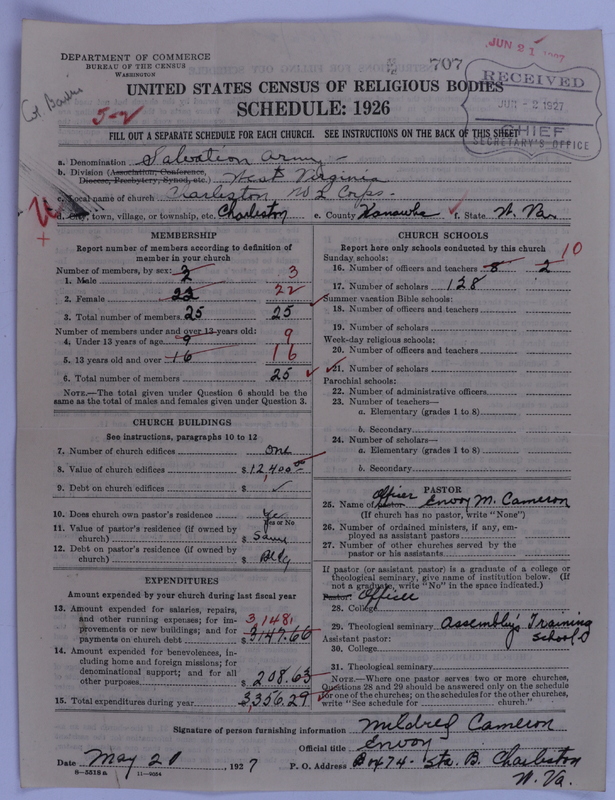 DEPARTMENT OF COMMERCE
BUREAU OF THE CENSUS
WASHINGTON
707
JUN 21 1927
RECEIVED
JUN - 2 1927
CHIEF
SECRETARY'S OFFICE
UNITED STATES CENSUS OF RELIGIOUS BODIES
SCHEDULE: 1926
5-2
FILL OUT A SEPARATE SCHEDULE FOR EACH CHURCH. SEE INSTRUCTIONS ON THE BACK OF THIS SHEET
a. Denomination Salvation Army
b. Division (Association, Conference, Diocese, Presbytery, Synod, etc.) West Virginia
c. Local name of church Charleston Corps.
d. City, town, village, or township, etc. Charleston e. County Kanawha f. State W. Va.
MEMBERSHIP
Report number of members according to definition of
member in your church
Number of members, by sex:
1. Male 3 3
2. Female 22 22
3. Total number of members 25 25
Number of members under and over 13 years old:
4. Under 13 years of age 9 9
5. 13 years old and over 16 16
6. Total number of members 25
NOTE.—The total given under Question 6 should be
same as the total of males and females given under Question 3.
CHURCH BUILDINGS
See instructions, paragraphs 10 to 12
7. Number of church edifices one
8. Value of church edifices $ 12,400.00
9. Debt on church edifices $ ✓
10. Does church own pastor's residence Yes
Yes or No
11. Value of pastor's residence (if owned by
church) $ Same
12. Debt on pastor's residence (if owned by
church) $ Bldg
EXPENDITURES
Amount expended by your church during last fiscal year
13. Amount expended for salaries, repairs,
and other running expenses; for im-
provements or new buildings; and for
payments on church debt $ 3,147.66 3,148
14. Amount expended for benevolences, in-
cluding home and foreign missions; for
denominational support; and for all
other purposes $ 208.63
15. Total expenditures during year $ 3,356.29
CHURCH SCHOOLS
Report here only schools conducted by this church
Sunday schools: 10
16. Number of officers and teachers 8 2
17. Number of scholars 128
Summer vacation Bible schools:
18. Number of officers and teachers
19. Number of scholars
Week-day religious schools:
20. Number of officers and teachers
21. Number of scholars
Parochial schools:
22. Number of administrative officers
23. Number of teachers—
a. Elementary (grades 1 to 8)
b. Secondary
24. Number of scholars—
a. Elementary (grades 1 to 8)
b. Secondary
PASTOR
25. Name of Pastor Officer Envoy M. Cameron
(If church has no pastor, write "None")
26. Number of ordained ministers, if any, em-
ployed as assistant pastors
27. Number of other churches served by the
pastor or his assistants
If pastor (or assistant pastor) is a graduate of a college or
theological seminary, give name of institution below. (If
not a graduate, write "No" in the space indicated.)
Pastor: Officer
28. College
29. Theological seminary Assembly's Training School
Assistant pastor:
30. College
31. Theological seminary
NOTE.—Where one pastor serves two or more churches,
Questions 28 and 29 should be answered only on the schedule
for one of the churches; on the schedules for the other churches,
write "See schedule for church."
Signature of person furnishing information Mildred Cameron
Official title Envoy
Date May 20 1927 P. O. Address Box 74 - Sta. B. Charleston
W. Va.
8-5518 a 11-9064